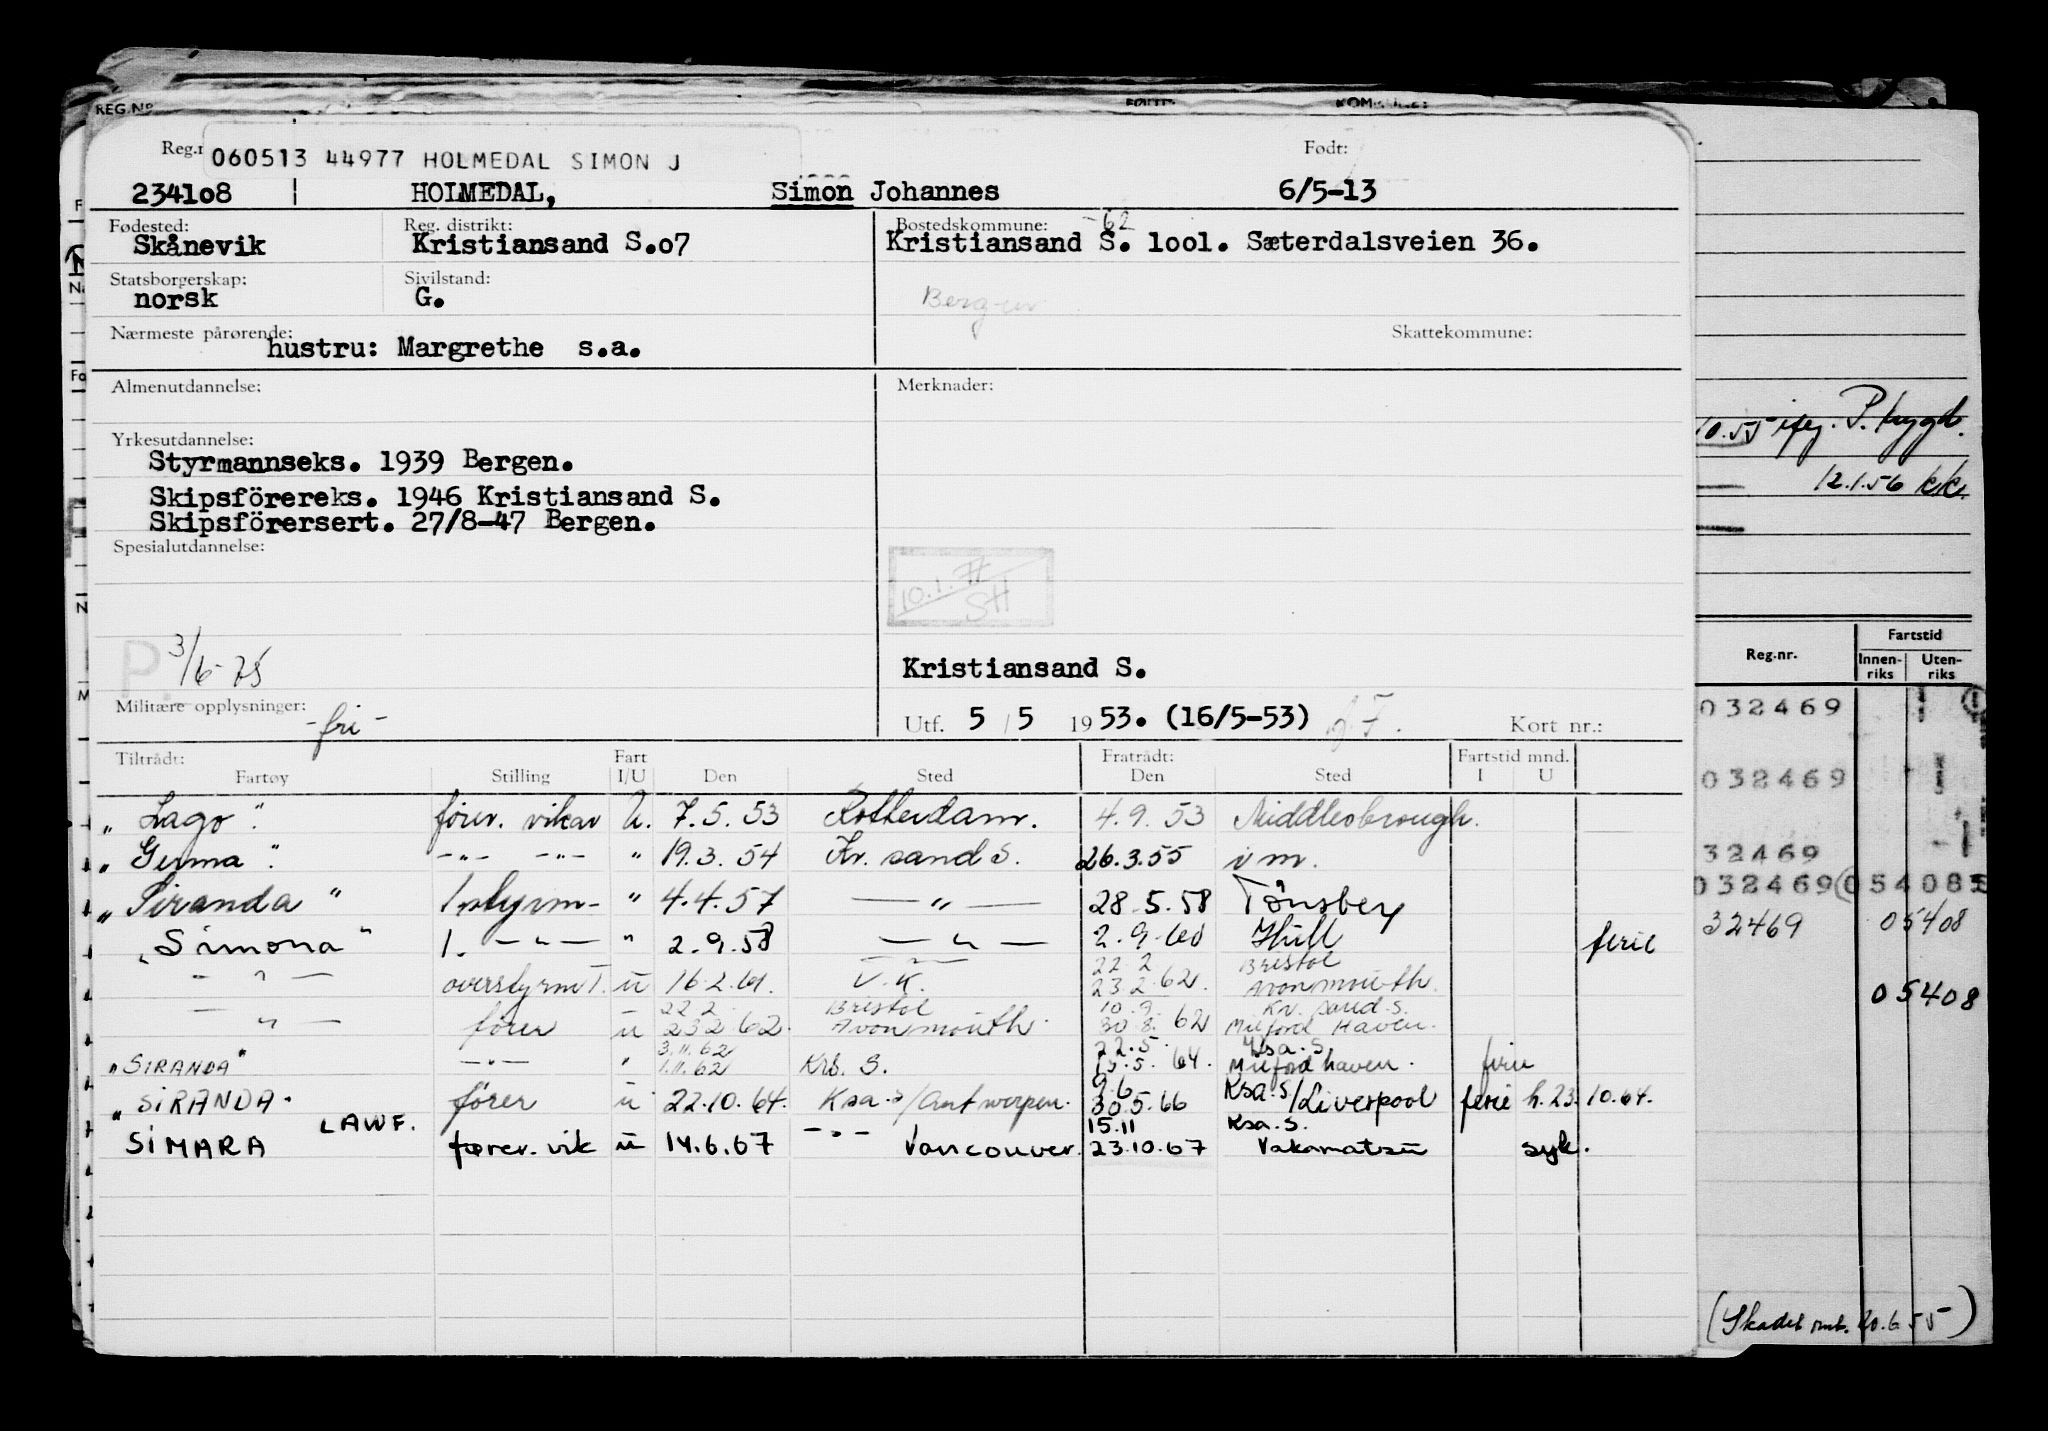 REG.Nº
Reg.n 060513 44977 HOLMEDAL SIMON J Født:
234108 HOLMEDAL, Simon Johannes 6/5-13
Fødested: Reg. distrikt: Bostedskommune: -62
Skånevik Kristiansand S.o7 Kristiansand S. 1001. Sæterdalsveien 36.
Statsborgerskap: Sivilstand:
norsk G.
Bergen
Nærmeste pårørende: Skattekommune:
hustru: Margrethe s.a.
Almenutdannelse: Merknader:
Yrkesutdannelse:
Styrmannseks. 1939 Bergen.
Skipsförereks. 1946 Kristiansand S.
Skipsförersert. 27/8-47 Bergen.
Spesialutdannelse:
10.1.77
SH
P. 3/6-75
Kristiansand S.
Militære opplysninger: -fri-
Utf. 5 / 5 1953. (16/5-53) Kort nr.:
Tiltrådt: Fart Fratrådt: Fartstid mnd.
Fartøy Stilling I/U Den Sted Den Sted I U
"Lago". fører. vikar U. 7.5.53 Rotterdam. 4.9.53 Middlesbrough.
"Germa". -"- -"- " 19.3.54 Kr. sand S. 26.3.55
"Siranda" 1 styrm- " 4.4.57 —"— 28.5.58 Tönsberg
"Simona" 1. —"— " 2.9.58 —"— 2.9.60 Hull ferie
22.2 Bristol
—"— overstyrm. u 16.2.61. 23.2.62. Avonmouth.
22.2 Bristol 10.9. Kr. sand S.
—"— fører u 23.2.62. Avonmouth. 30.8.62 Milford Haven.
3.11.62 22.5. Ksa. S.
"SIRANDA" -"- " 1.11.62 Krs. S. 15.5.64. Milford haven. ferie
9.6 Ksa. S.
"SIRANDA. fører u 22.10.64. Ksa. S/Antwerpen. 30.5.66 /Liverpool ferie h. 23.10.64.
LAWF. 15.11 Ksa. S.
SIMARA fører. vik u 14.6.67 -"- Vancouver. 23.10.67 Vakamatsu syk.
10.55 P. trygd.
12.1.56 kk.
Reg.nr. Fartstid
Innen-riks Uten-riks
032469
032469
32469
032469 (054085
32469 05408
05408
(Skadet 20.6.55)